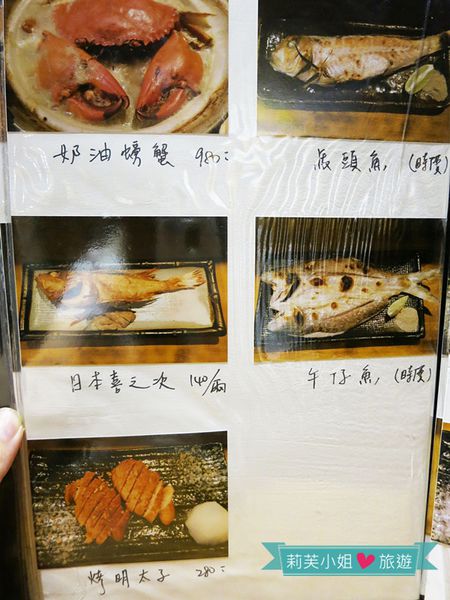 奶油螃蟹 980:
馬頭魚 (時價)
日本喜之次 140/兩
午仔魚 (時價)
烤明太子 280:
莉芙小姐♥旅遊